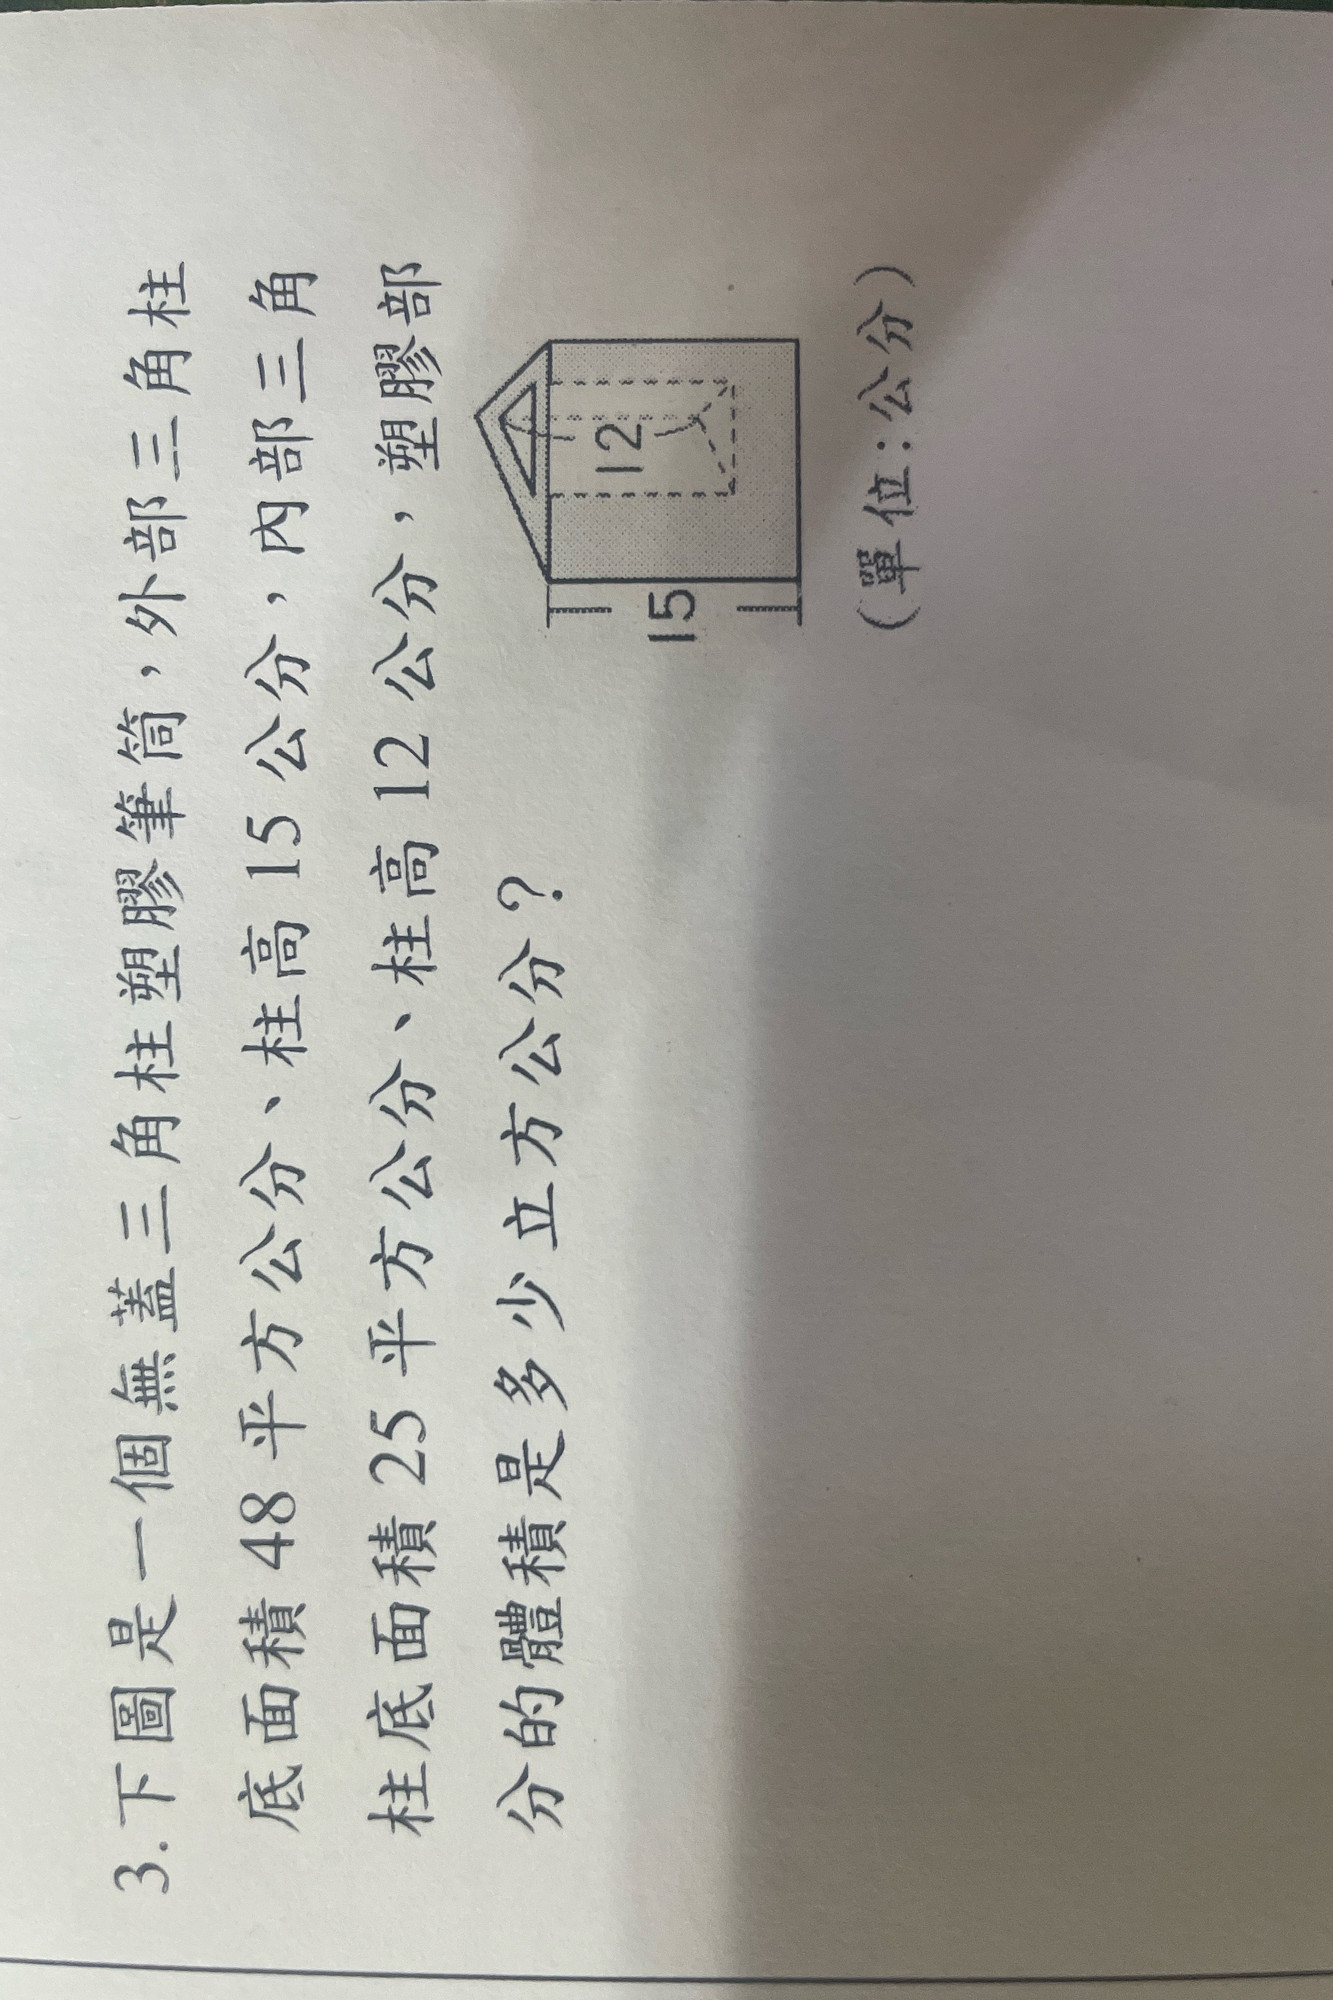 3.下圖是一個無蓋三角柱塑膠筆筒，外部三角柱
底面積 48 平方公分、柱高 15 公分，內部三角
柱底面積 25 平方公分、柱高 12 公分，塑膠部
分的體積是多少立方公分？
12
15
（單位：公分）